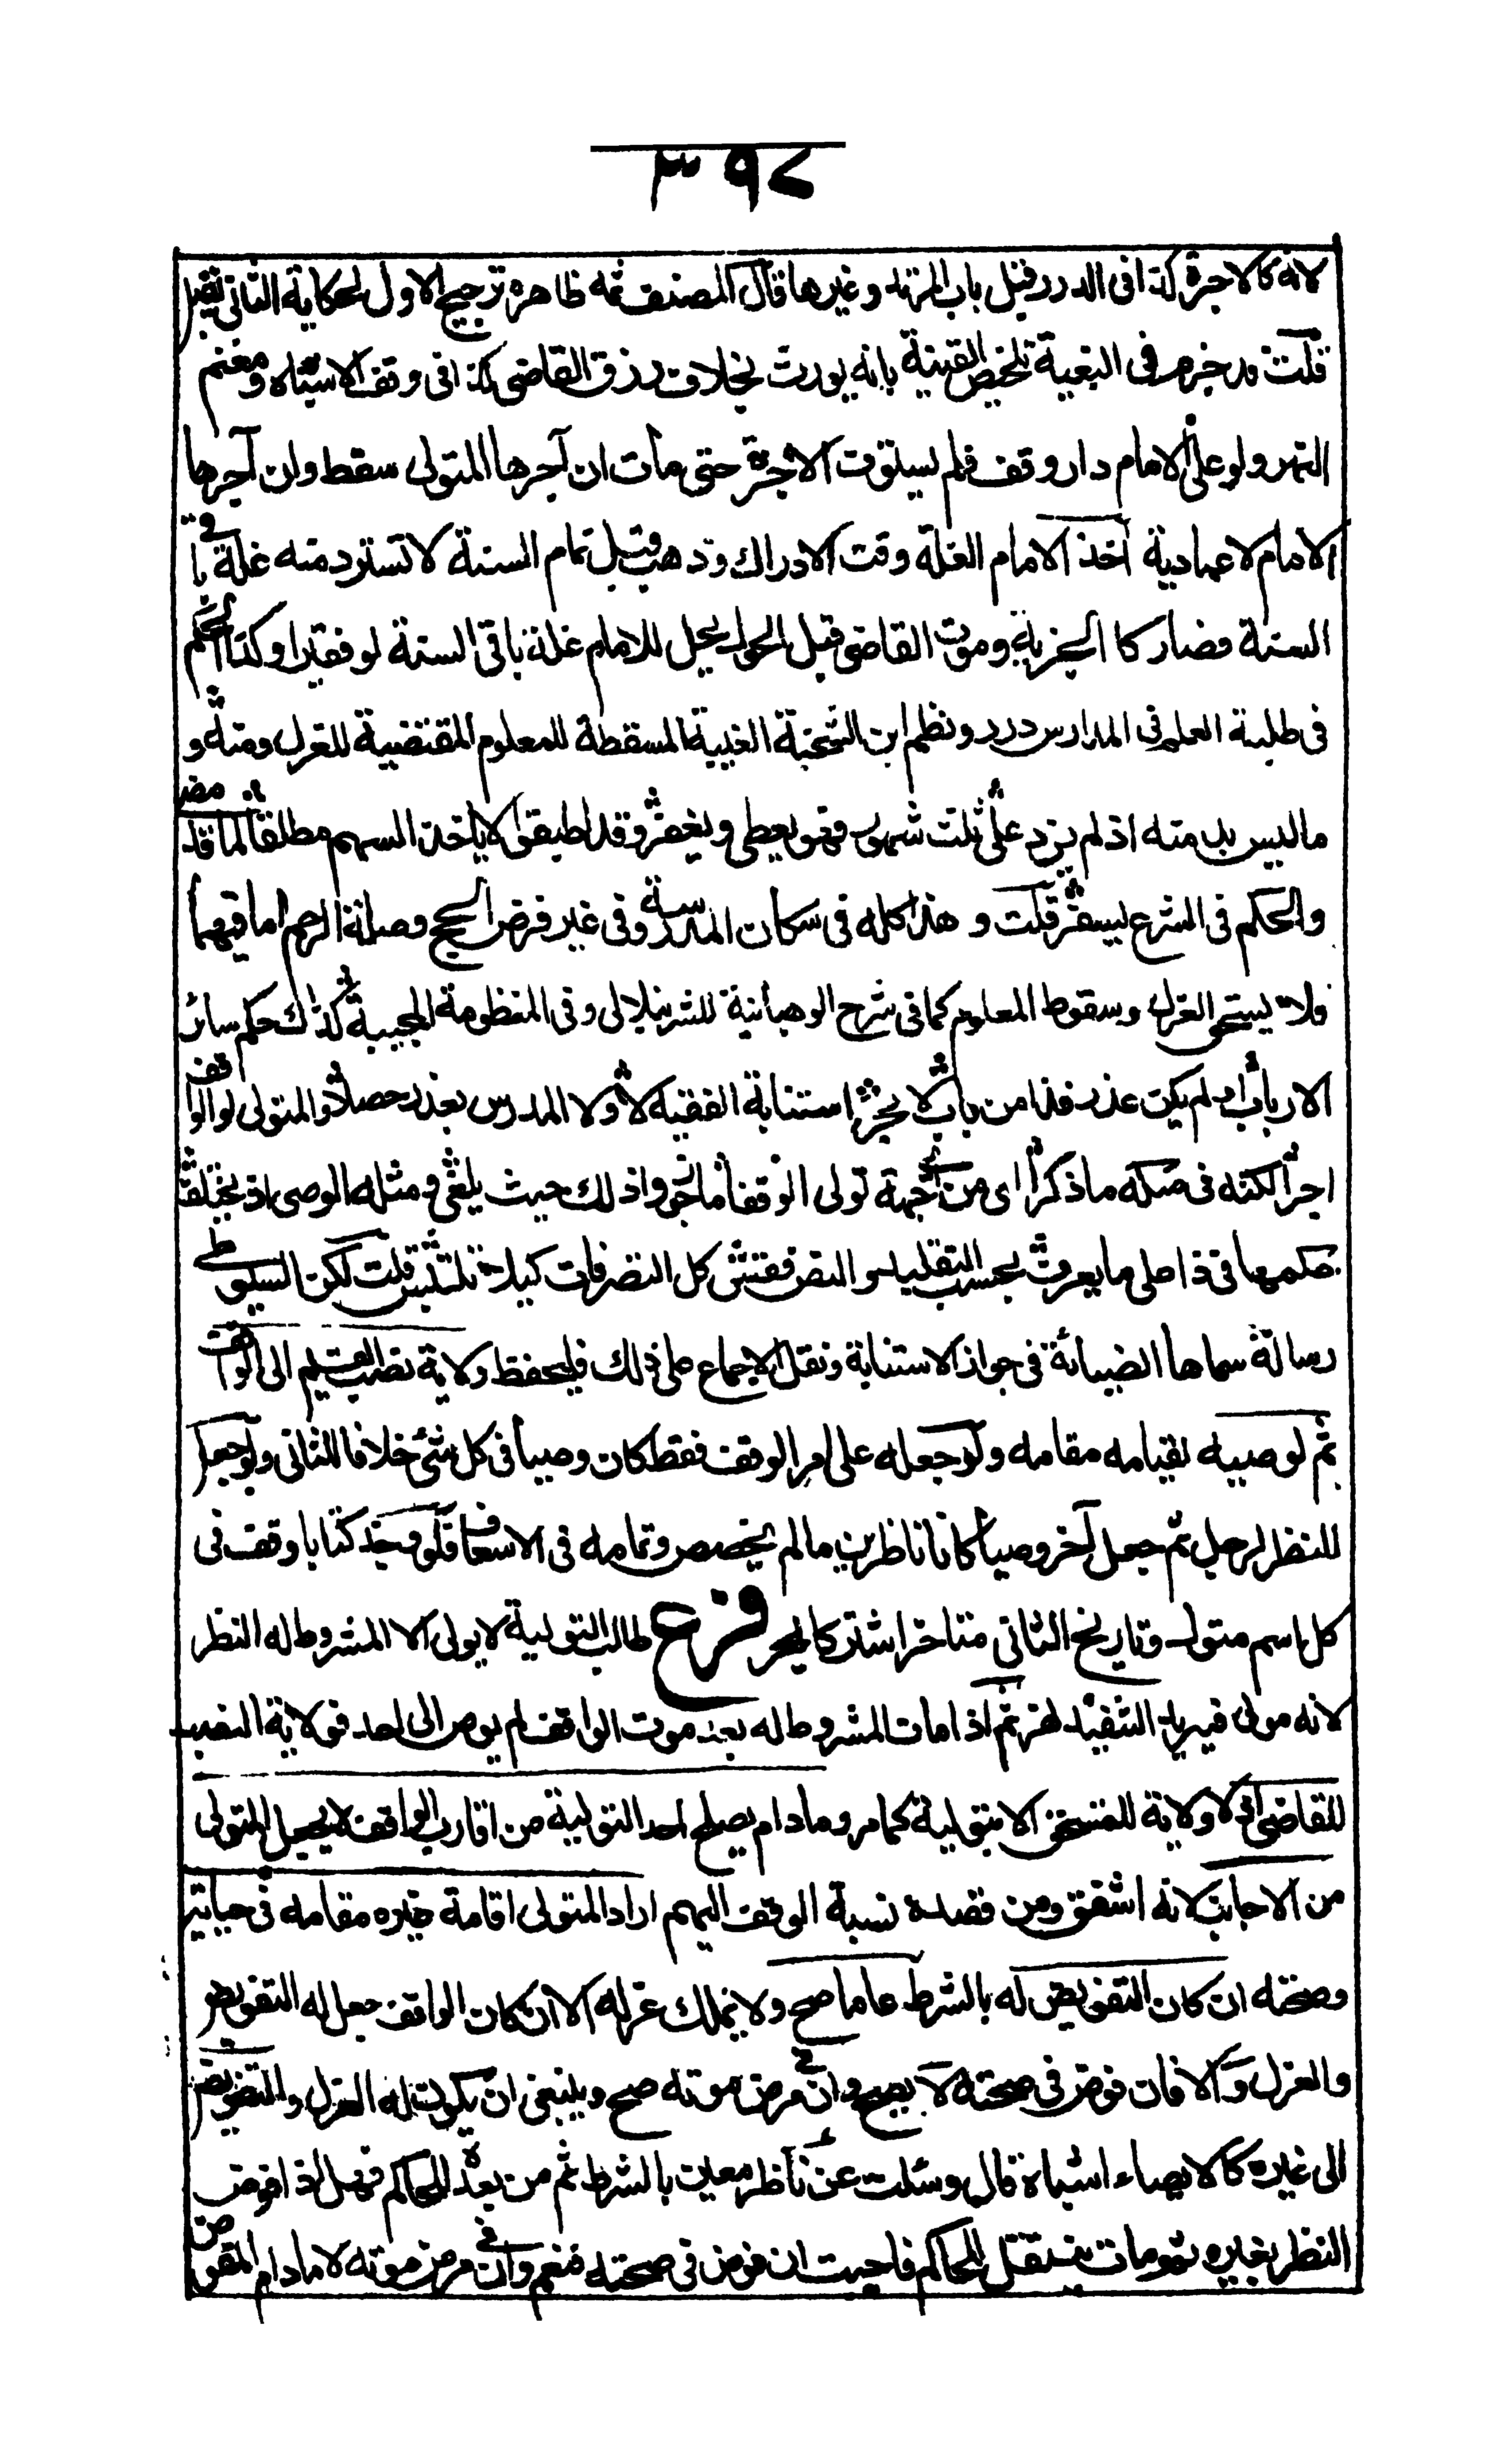 ٣٩٢
لانه كالاجرة كذا فى الدرر قبيل باب المرتد وغيرها قال المصنف ثمه ظاهره ترجيح الاول لحكاية الثانى بقيل
قلت قد جزم فى البغية تلخيص القنية بانه يورث بخلاف رزق القاضى كذا فى وقف الاشباه ومغنم
النهر ولو على الامام دار وقف فلم يستوف الاجرة حتى مات ان آجرها المتولى سقط وان آجرها
الامام لا عمادية اخذ الامام الغلة وقت الادراك وذهب قبل تمام السنة لا تسترد منه غلة باقى
السنة فصار كالجزية وموت القاضى قبل الحول يحل للامام غلة باقى السنة لو فقيرا وكذا الحكم
فى طلبة العلم فى المدارس درر ونظم ابن الشحنة الغيبة المسقطة للمعلوم المقتضية للعزل ومنه و
ماليس بد منه اذ لم يزد على ثلث شهور فهو يعطى ويغفر وقد اطبقوا لا ياخذ السهم مطلقا لما قد مضى
والحكم فى الشرع يسفر قلت وهذا كله فى سكان المدرسة وفى غير فرض الحج وصلة الرحم اما فيهما
فلا يستحق العزل وسقوط المعلوم كما فى شرح الوهبانية للشرنبلالى وفى المنظومة المحبية كذاك حكم سائر
الارباب او لم يكن عذر فذا من باب لا يجز استنابة الفقيه لا ولا المدرس بعذر حصلا والمتولى لو الواقف
اجرا لكنه فى صكه ماذكرا اى من اى جهة تولى الوقفا ما جوزوا ذلك حيث يلفى ومثله الوصى اذ يختلف
حكمهما فى ذا على ما يعرف بحسب التقليد والنص فقس كل التصرفات كيلا تلتبس قلت لكن للسيوطى
رسالة سماها الضيابة فى جواز الاستنابة ونقل الاجماع على ذلك فليحفظ ولاية نصب القيم الى الواقف
ثم لوصيه لقيامه مقامه ولو جعله على امر الوقف فقط كان وصيا فى كل شئ خلافا للثانى ولو جعل
النظر لرجل ثم جعل آخر وصيا كانا ناظرين مالم يخصص وتمامه فى الاسعاف فلو وجد كتابا وقف فى
كل اسم متول وتاريخ الثانى متاخر اشتركا بحر فرع طالب التولية لا يولى الا المشروط له النظر
لانه مولى فيريد التنفيذ نهر ثم اذا مات المشروط له بعد موت الواقف لم يوص الى احد فولاية النصب
للقاضى اذ لا ولاية للمستحق الا بتولية كما مر ومادام يصلح احد للتولية من اقارب الواقف لا يجعل المتولى
من الاجانب لانه اشفق ومن قصده نسبة الوقف اليهم اراد المتولى اقامة غيره مقامه فى حياته
وصحته ان كان التفويض له بالشرط عاما صح ولا يملك عزله الا ان كان الواقف جعل له التفويض
والعزل والا فان فوض فى صحته لا يصح وان فى مرض موته صح وينبغى ان يكون له العزل والتفويض
الى غيره كالايصاء اشباه قال وسئلت عن ناظر معين بالشرط ثم من بعده للحاكم فهل اذا فوض
النظر لغيره ثم مات ينتقل للحاكم فاجبت ان فوض فى صحته فنعم وان فى مرض موته لا مادام المفوض